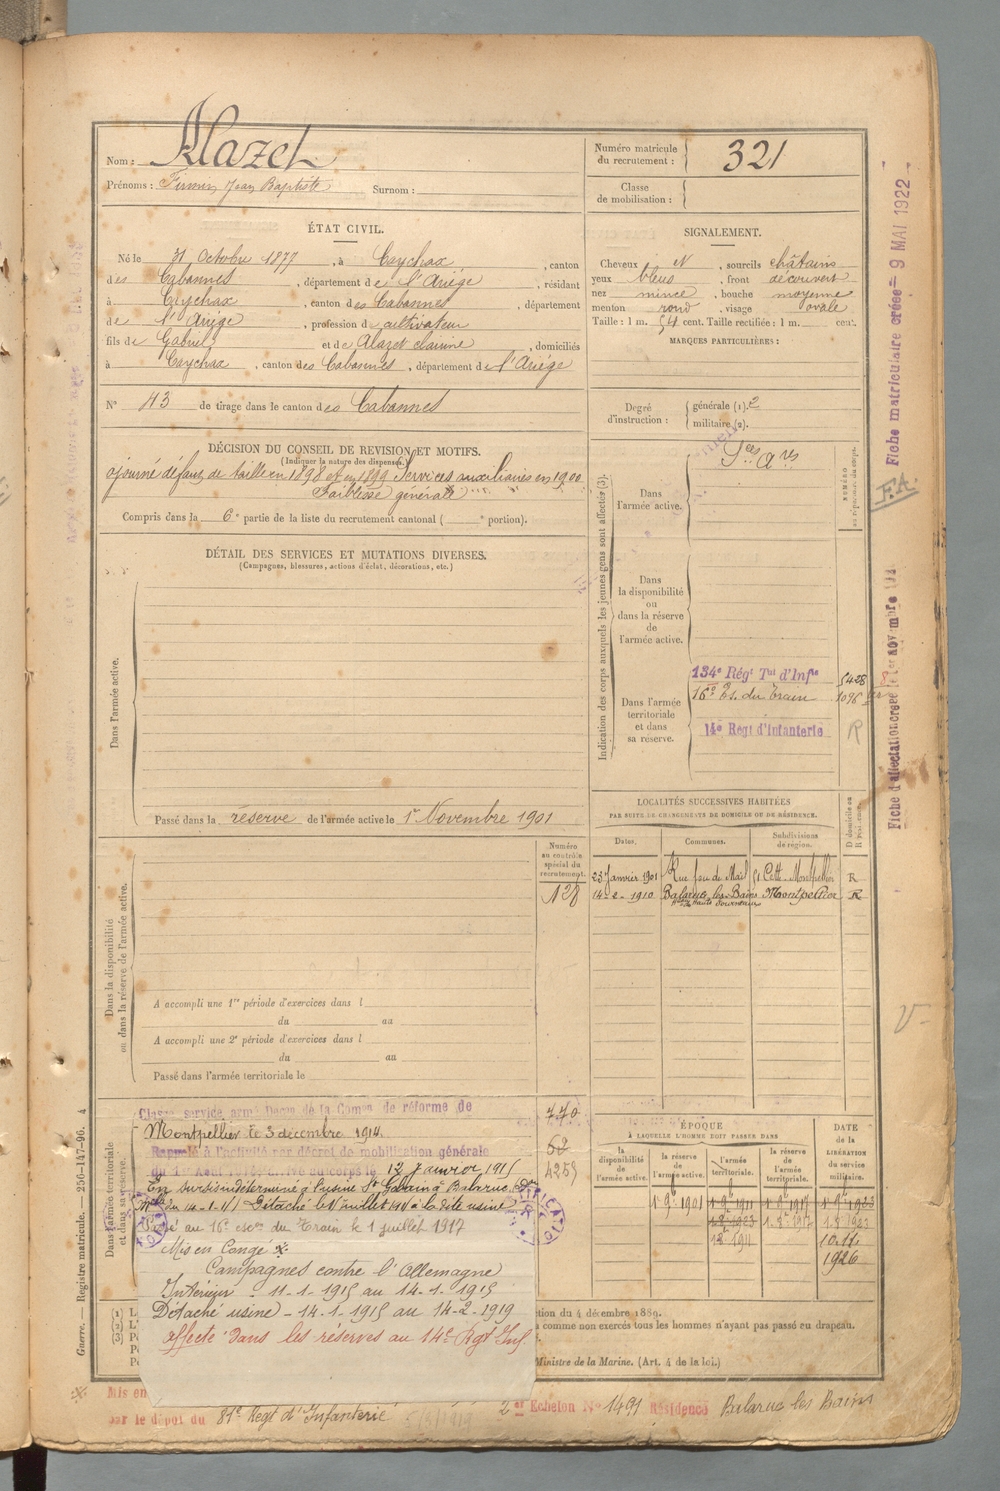 Nom : Alazet
Prénoms : Firmin Jean Baptiste Surnom :
Numéro matricule du recrutement : 321
Classe de mobilisation :
ÉTAT CIVIL.
Né le 31 Octobre 1877, à Caychax, canton
des Cabannes, département de l'Ariège, résidant
à Caychax, canton des Cabannes, département
de l'Ariège, profession de cultivateur
fils de Gabriel et de Alazet claurine, domiciliés
à Caychax, canton des Cabannes, département de l'Ariége
N° 43 de tirage dans le canton des Cabannes
SIGNALEMENT.
Cheveux N, sourcils châtains
yeux bleus, front découvert
nez mince, bouche moyenne
menton rond, visage ovale
Taille : 1 m. 54 cent. Taille rectifiée : 1 m. cent.
MARQUES PARTICULIÈRES :
Degré d'instruction : générale (1). 2
militaire (2).
DÉCISION DU CONSEIL DE REVISION ET MOTIFS.
(Indiquer la nature des dispenses.)
ajourné défaut de taille en 1898 et en 1899 Services auxiliaires en 1900
Faiblesse générale
Compris dans la 6e partie de la liste du recrutement cantonal ( e portion).
DÉTAIL DES SERVICES ET MUTATIONS DIVERSES.
(Campagnes, blessures, actions d'éclat, décorations, etc.)
Dans l'armée active.
Passé dans la réserve de l'armée active le 1er Novembre 1901
Indication des corps auxquels les jeunes gens sont affectés (3).
Dans l'armée active.
Sces ares
Dans la disponibilité ou dans la réserve de l'armée active.
Dans l'armée territoriale et dans sa réserve.
134e Régt Tal d'Infie 5428
16e Es. du Train 1096
14e Régt d'Infanterie R
LOCALITÉS SUCCESSIVES HABITÉES
PAR SUITE DE CHANGEMENTS DE DOMICILE OU DE RÉSIDENCE.
Dates. Communes. Subdivisions de région. D domicile ou R résidence.
25 Janvier 1901 Rue Jeu de Mail 51 Cette Montpellier R
14-2-1910 Balaruc-les-Bains Montpellier R
Numéro au contrôle spécial du recrutement.
128
Dans la disponibilité ou dans la réserve de l'armée active.
A accompli une 1re période d'exercices dans l
du au
A accompli une 2e période d'exercices dans l
du au
Passé dans l'armée territoriale le
Dans l'armée territoriale et dans sa réserve.
Classé service armé Don de la Comon de réforme de
Montpellier le 3 décembre 1914.
Rappelé à l'activité par décret de mobilisation générale
du 1er Août 1914. Arrivé au corps le 12 Janvier 1915
En sursis indéterminé à l'usine St Gobain à Balaruc
du 14-1-15 Détaché le 1 juillet 1915 à la dite usine
Passé au 16e escon du Train le 1 juillet 1917
Mis en Congé
Campagnes contre l'Allemagne
Intérieur - 11-1-1915 au 14-1-1915
Détaché usine - 14-1-1915 au 14-2-1919
affecté dans les réserves au 14e Rgt Inf.
770
62
4253
ÉPOQUE
À LAQUELLE L'HOMME DOIT PASSER DANS
la disponibilité de l'armée active. la réserve de l'armée active. l'armée territoriale. la réserve de l'armée territoriale. DATE de la LIBÉRATION du service militaire.
1 9 1901 1 9 1911 1 9 1917 1 9 1923
10.11.
1926
ction du 4 décembre 1889.
s comme non exercés tous les hommes n'ayant pas passé au drapeau.
Ministre de la Marine. (Art. 4 de la loi.)
Mis en
par le dépot du 81e Regt d'Infanterie 2e Echelon N° 1491 Résidence Balaruc les Bains
Guerre. — Registre matricule. — 256-147-96. 4
Fiche matriculaire créée - 9 MAI 1922
F.A.